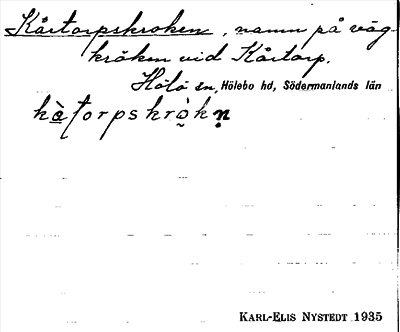 Kårtorpskroken, namn på väg-
kröken vid Kårtorp.
Hölö sn, Hölebo hd, Södermanlands län
KARL-ELIS NYSTEDT 1935